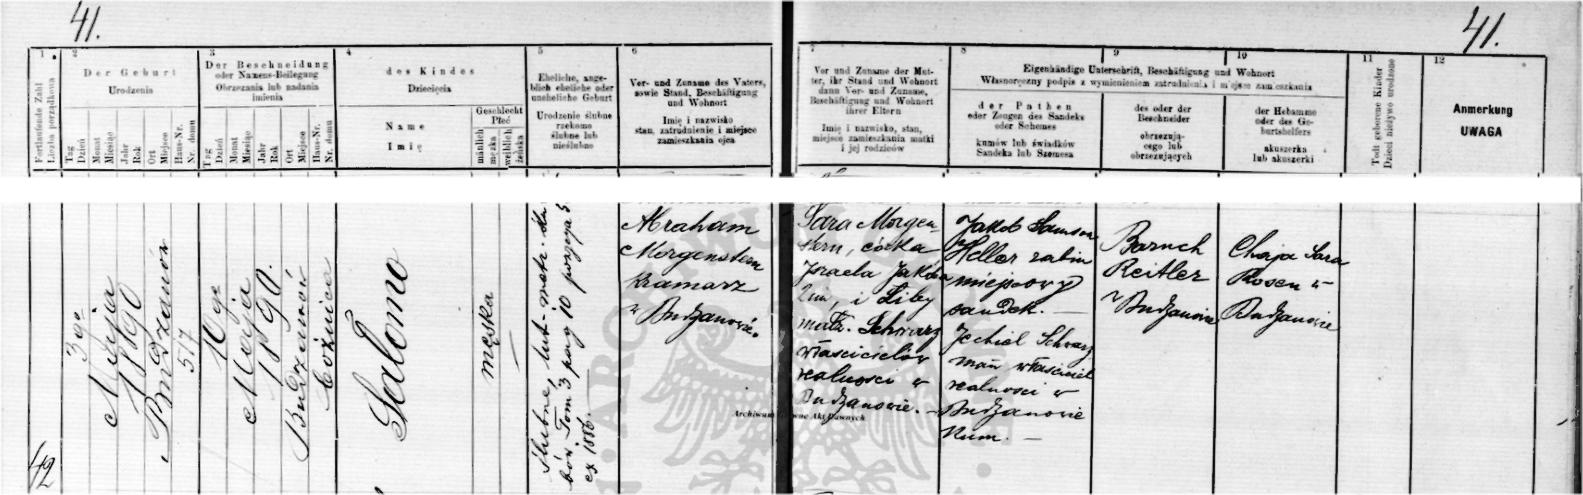 41.
41.
1
2
3
4
5
6
7
8
9
10
11
12
Fortlaufende Zahl
Liczba porządkowa
Der Geburt
Urodzenia
Tag
Dzień
Monat
Miesiąc
Jahr
Rok
Ort
Miejsce
Haus-Nr.
Nr. domu
Der Beschneidung
oder Namens-Beilegung
Obrzezania lub nadania
imienia
Tag
Dzień
Monat
Miesiąc
Jahr
Rok
Ort
Miejsce
Haus-Nr.
Nr. domu
des Kindes
Dziecięcia
Name
Imię
Geschlecht
Płeć
männlich
męzka
weiblich
żeńska
Eheliche, ange-
blich eheliche oder
uneheliche Geburt
Urodzenie ślubne
rzekomo
ślubne lub
nieślubne
Vor- und Zuname des Vaters,
sowie Stand, Beschäftigung
und Wohnort
Imię i nazwisko
stan, zatrudnienie i miejsce
zamieszkania ojca
Vor und Zuname der Mut-
ter, ihr Stand und Wohnort
dann Vor- und Zuname,
Beschäftigung und Wohnort
ihrer Eltern
Imię i nazwisko, stan,
miejsce zamieszkania matki
i jej rodziców
Eigenhändige Unterschrift, Beschäftigung und Wohnort
Własnoręczny podpis z wymienieniem zatrudnienia i miejsca zamieszkania
der Pathen
oder Zeugen des Sandeks
oder Schemes
kumów lub świadków
Sandeka lub Szemesa
des oder der
Beschneider
obrzezują-
cego lub
obrzezujących
der Hebamme
oder des Ge-
burtshelfers
akuszerka
lub akuszerki
Todt geborene Kinder
Dzieci nieżywo urodzone
Anmerkung
UWAGA
42
3go
Maja
1890
Budzanów
517
10go
Maja
1890.
Budzanów
bóżnica
Salomo
męska
ślubne, lub. metr. ślu
bów Tom 3 pag 10 pozycja 5
ex 1886.
Abraham
Morgenstern
kramarz
w Budzanowie.
Sara Morgen-
stern, córka
Izraela Jakóba
2im. i Liby
małż. Schwarz
właścicielów
realności w
Budzanowie.
Jakob Samson
Heller rabin
miejscowy
sandek.
Jechiel Schwarz
man właściciel
realności w
Budzanowie
Kum.
Baruch
Reitler
w Budzanowie
Chaja Sara
Rosen w
Budzanowie
Archiwum Główne Akt Dawnych